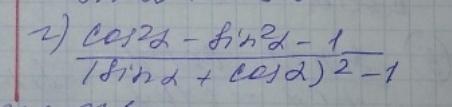 г) cos²α - sin²α - 1
(sinα + cosα)² - 1